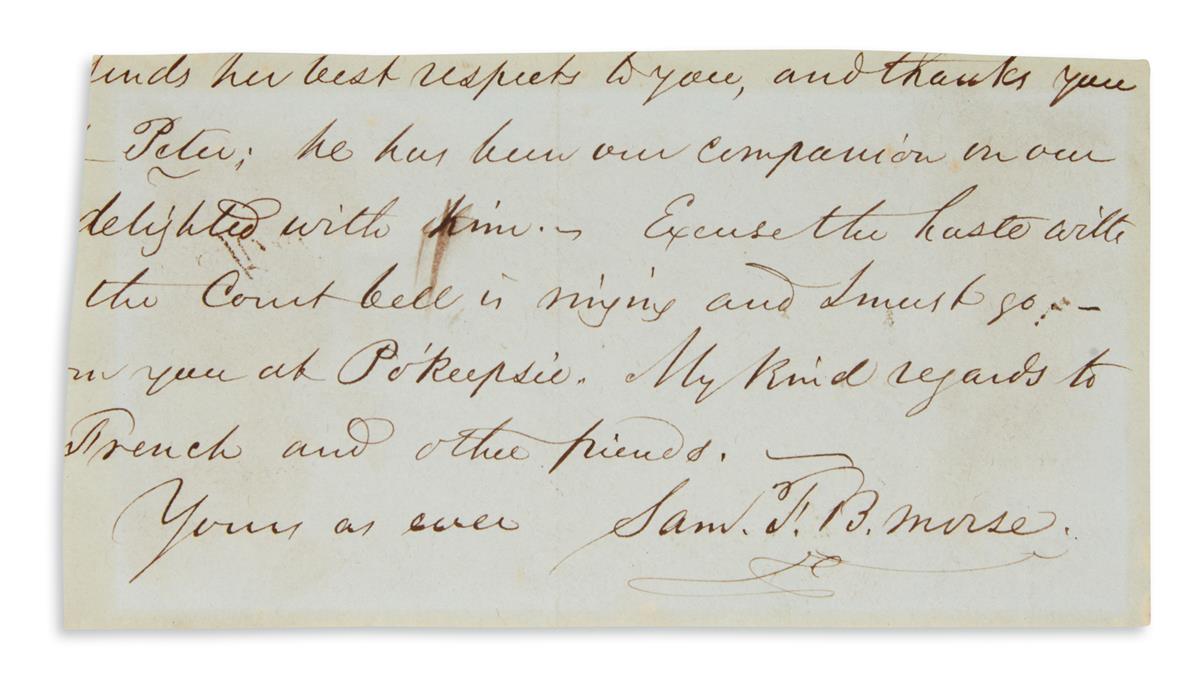 sends her best respects to you, and thanks you
Peter; he has been our companion on our
delighted with him. – Excuse the haste with
the Court bell is ringing and I must go. –
you at Po'keepsie. My kind regards to
French and other friends. —
Yours as ever Saml. F. B. Morse.